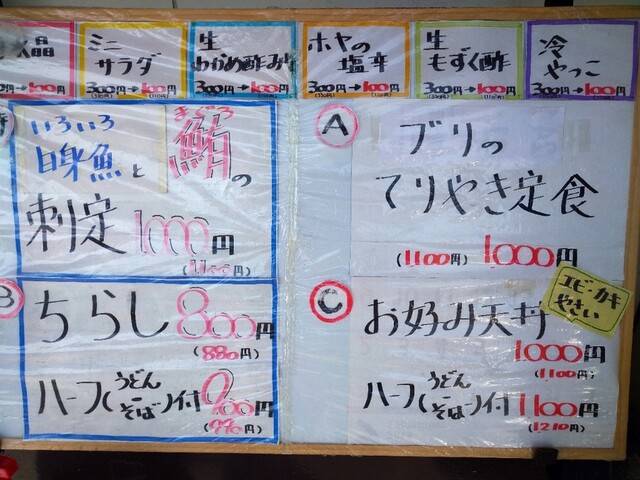 品
円→100円
ミニ
サラダ
300円→100円
(110円)
生
わかめ酢みそ
300円→100円
(110円)
ホヤの
塩辛
300円→100円
(110円)
生
もずく酢
300円→100円
(110円)
冷
やっこ
300円→100円
(110円)
いろいろ
白身魚と
まぐろ
鮪の
刺定 1000円
(1100円)
B
ちらし 800円
(880円)
ハーフ(うどん
そば)付 900円
(990円)
A
ブリの
てりやき定食
(1100円) 1000円
C
お好み天丼
エビ・カキ
やさい
1000円
(1100円)
ハーフ(うどん
そば)付 1100円
(1210円)